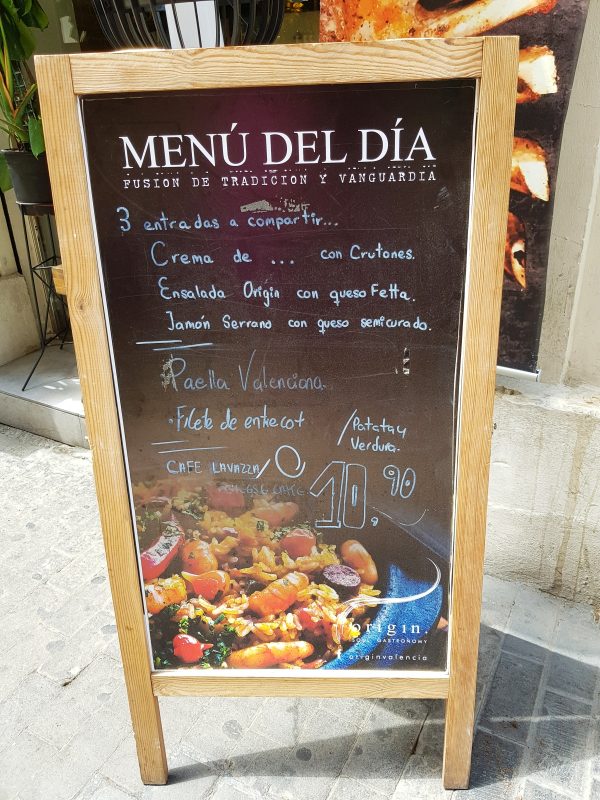 MENÚ DEL DÍA
FUSION DE TRADICION Y VANGUARDIA
3 entradas a compartir...
Crema de ... con Crutones.
Ensalada Origin con queso Fetta.
Jamón Serrano con queso semicurado.
Paella Valenciana.
·Filete de entrecot /Patata y
Verdura.
CAFE LAVAZZA/
10,90
origin
SOUL GASTRONOMY
originvalencia